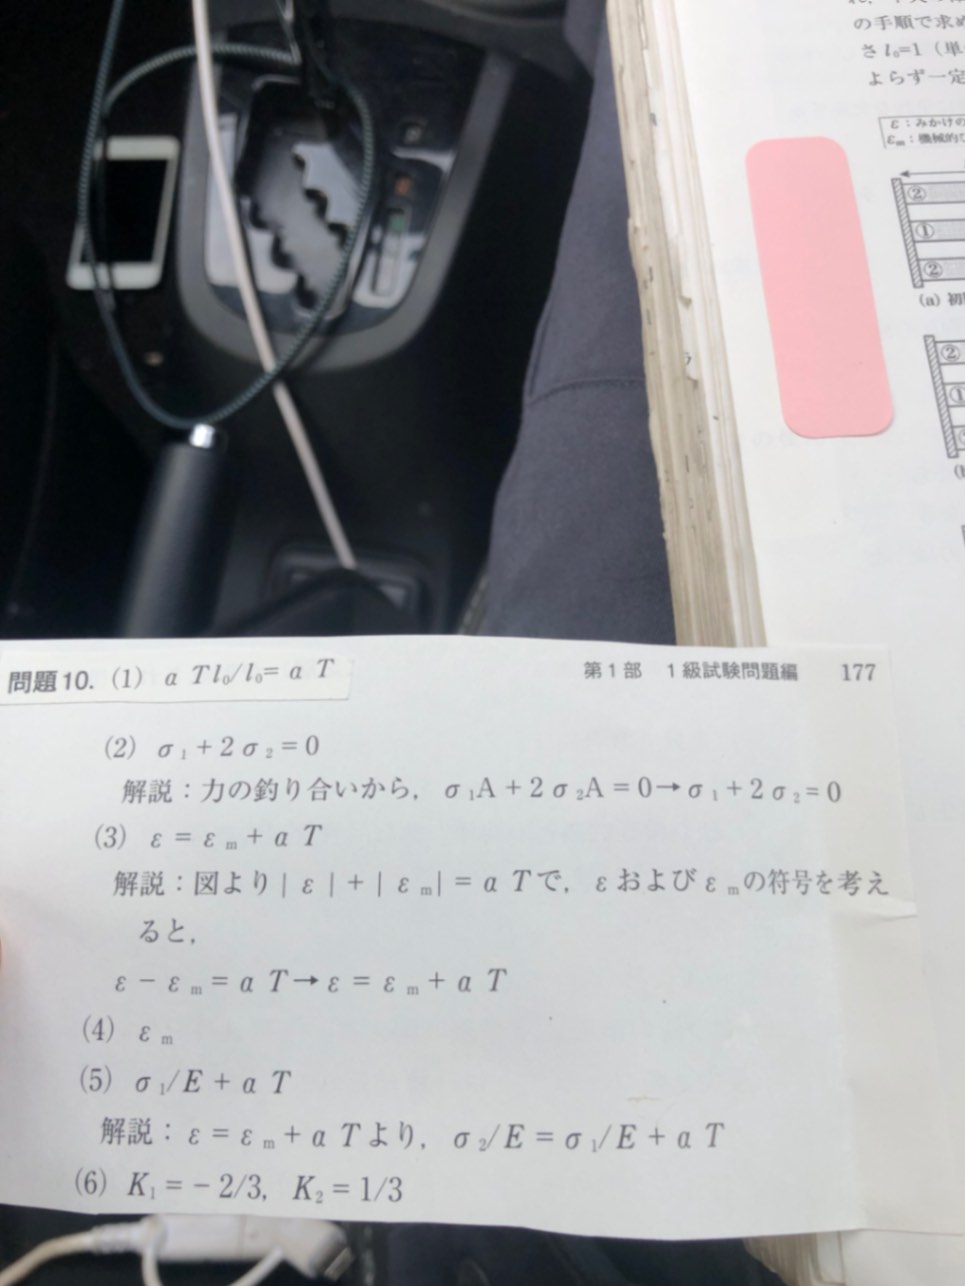 の手順で求め
さ l₀=1（単
よらず一定
ε：みかけの
εₘ：機械的ひ
②
①
②
(a) 初
②
①
(b
問題10. (1) α T l₀/l₀= α T
第1部 1級試験問題編 177
(2) σ₁+2σ₂=0
解説：力の釣り合いから，σ₁A+2σ₂A=0→σ₁+2σ₂=0
(3) ε=εₘ+α T
解説：図より|ε|+|εₘ|=α Tで，εおよびεₘの符号を考え
ると，
ε−εₘ=α T→ε=εₘ+α T
(4) εₘ
(5) σ₁/E+α T
解説：ε=εₘ+α Tより，σ₂/E=σ₁/E+α T
(6) K₁=−2/3, K₂=1/3